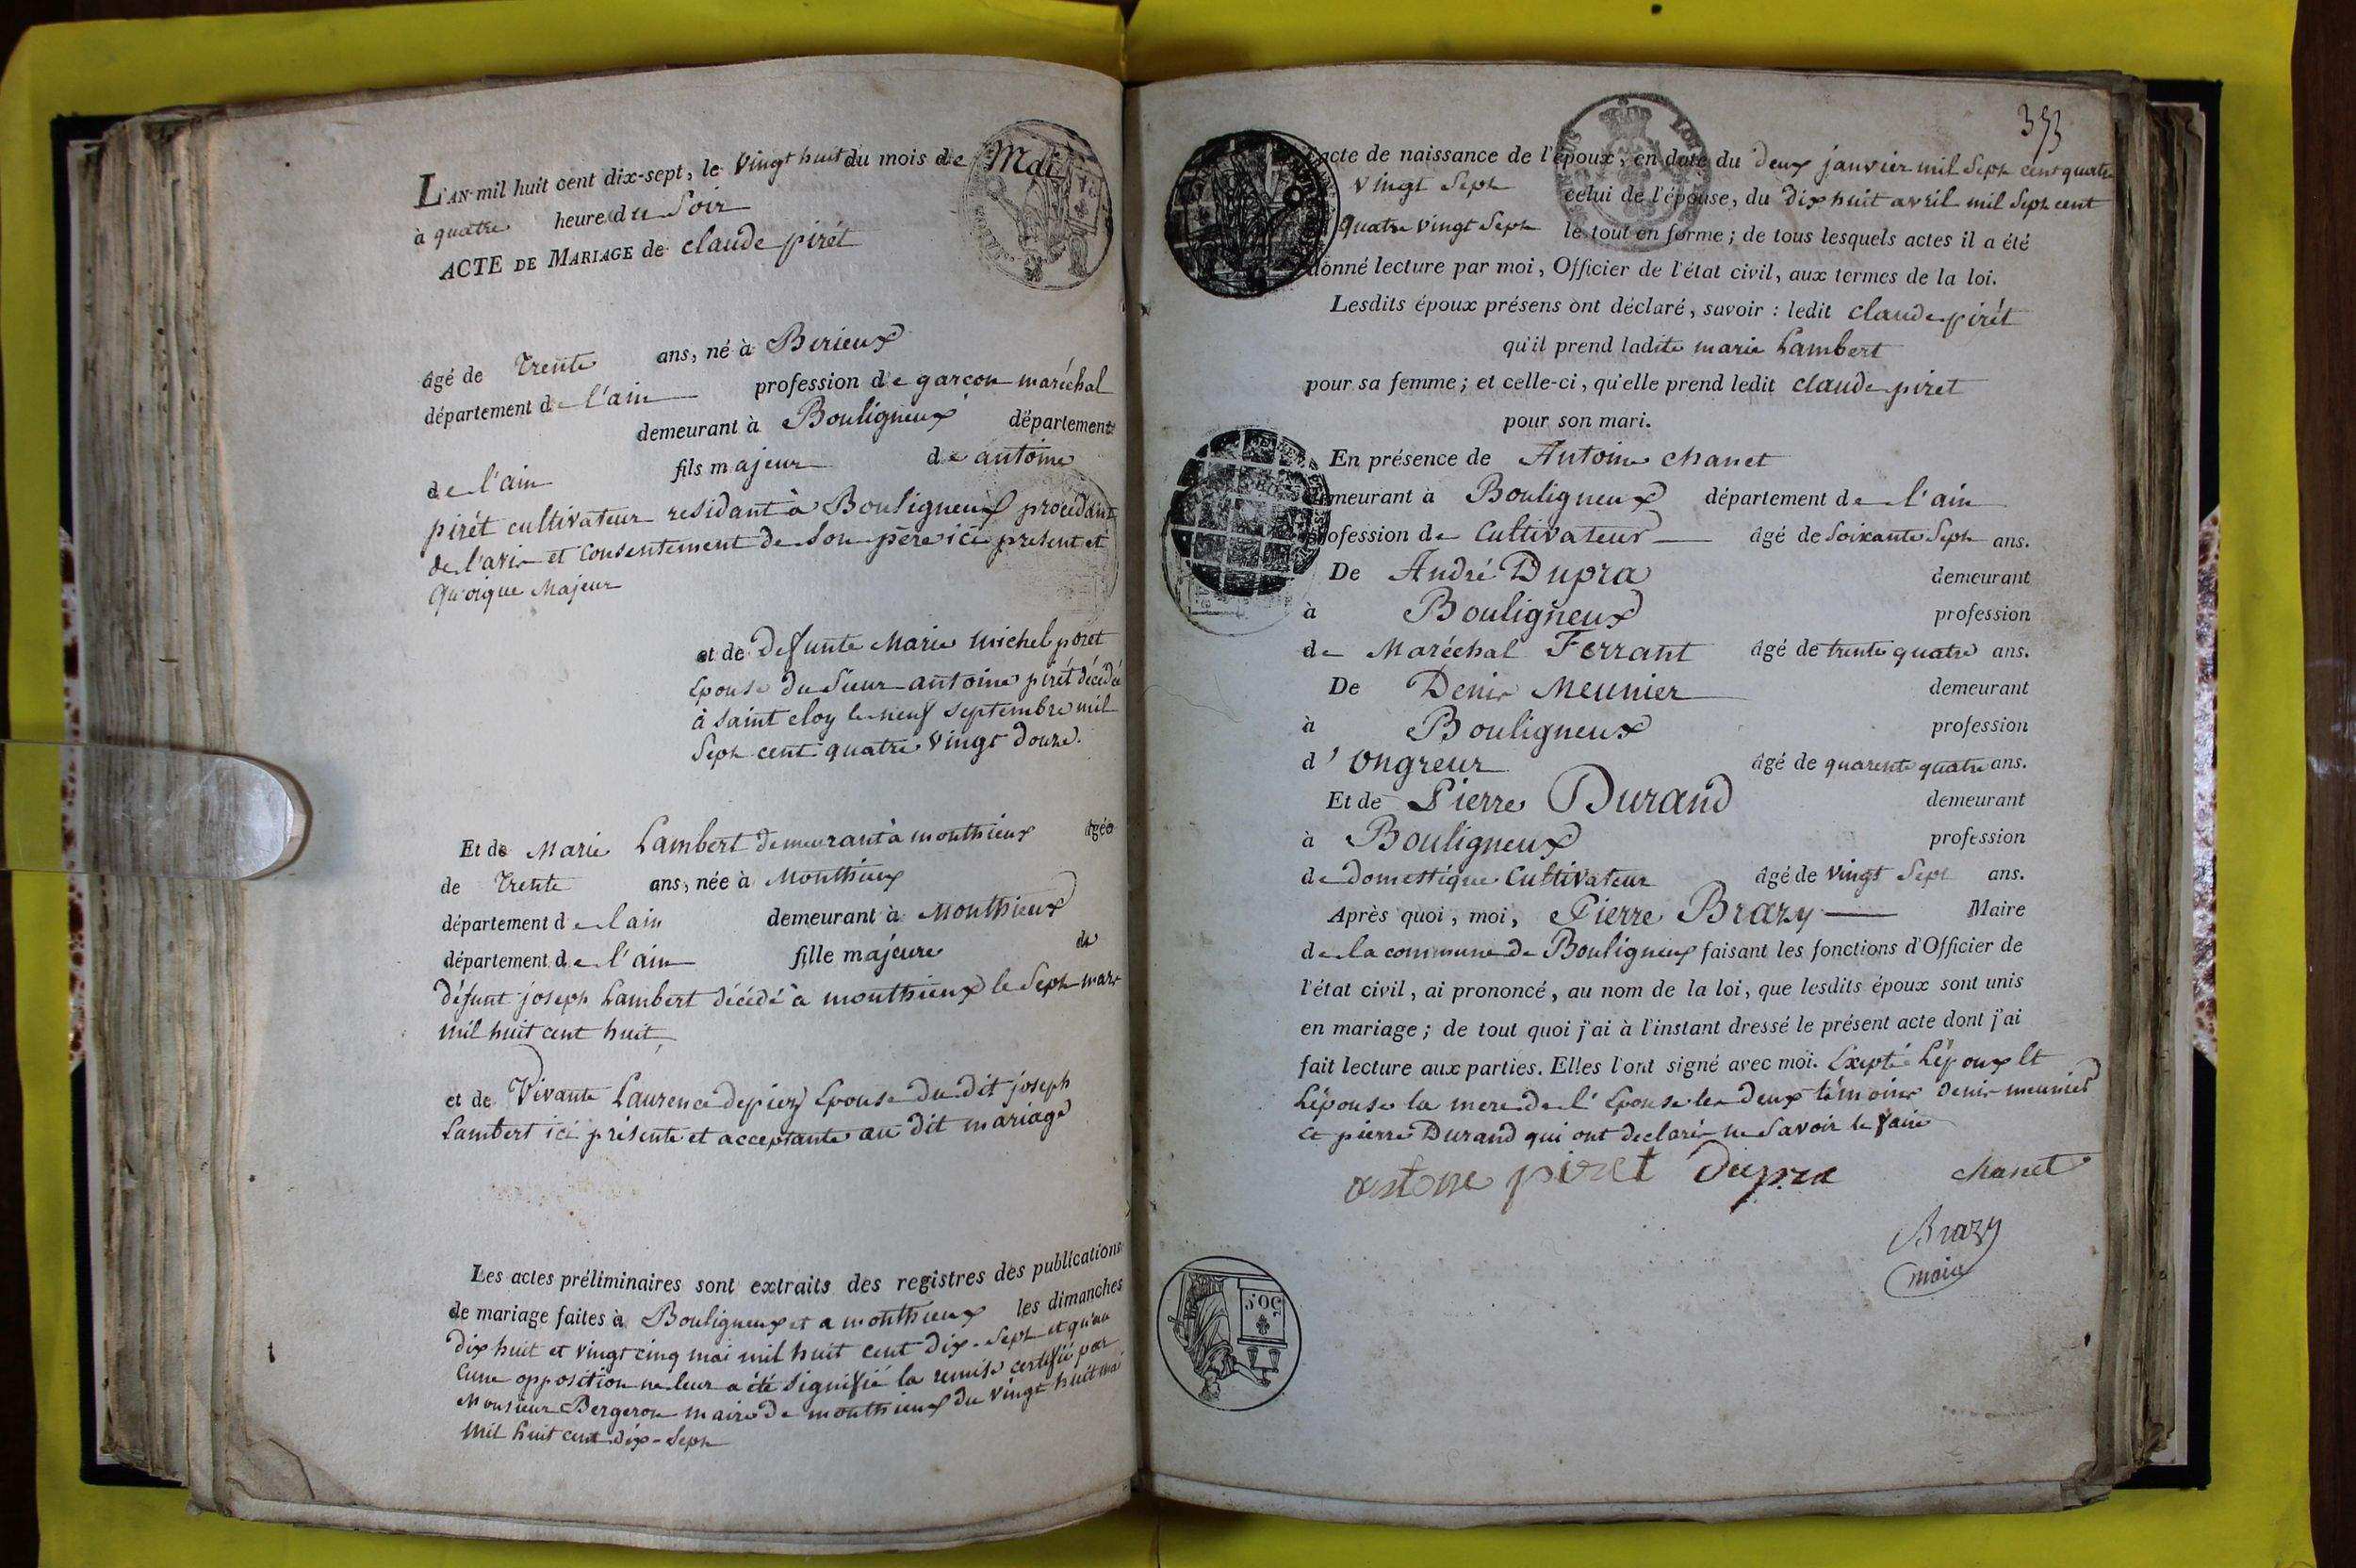 L'AN mil huit cent dix-sept, le vingt huit du mois de Mai
à quatre heure du Soir
ACTE DE MARIAGE de claude pirét
âgé de trente ans, né à Birieux
département de l'ain profession de garçon maréchal
demeurant à Bouligneux département
de l'ain fils majeur de antoine
pirét cultivateur residant à Bouligneux procédant
de l'avis et Consentement de son père ici present et
Quoique Majeur
et de defunte Marie Michel poret
Epouse du Sieur antoine pirét décédé
à Saint eloy le neuf Septembre mil
Sept cent quatre vingt douze.
Et de Marie Lambert demeurant à monthieux âgée
de trente ans, née à Monthieux
département de l'ain demeurant à Monthieux
département de l'ain fille majeure de
défunt joseph Lambert décédé à monthieux le Sept mars
mil huit cent huit
et de Vivante Laurence depiez Epouse du dit joseph
Lambert ici présente et acceptante au dit mariage
Les actes préliminaires sont extraits des registres des publications
de mariage faites à Bouligneux et a monthieux les dimanches
dix huit et vingt cinq mai mil huit cent dix-Sept et qu'au
cune opposition ne leur a été Signifié la remise certifié par
Monsieur Bergeron maire de monthieux du vingt huit mai
mil huit cent dix-Sept
353
acte de naissance de l'époux, en date du deux janvier mil Sept cent quatre
vingt Sept celui de l'épouse, du dix huit avril mil Sept cent
quatre vingt Sept le tout en forme; de tous lesquels actes il a été
donné lecture par moi, Officier de l'état civil, aux termes de la loi.
Lesdits époux présens ont déclaré, savoir : ledit claude pirét
qu'il prend ladite marie Lambert
pour sa femme; et celle-ci, qu'elle prend ledit claude piret
pour son mari.
En présence de Antoine chanet
demeurant à Bouligneux département de l'ain
profession de Cultivateur âgé de Soixante Sept ans.
De André Dupra demeurant
à Bouligneux profession
de Maréchal Ferrant âgé de trente quatre ans.
De Denis Meunier demeurant
à Bouligneux profession
d'ongreur âgé de quarente quatre ans.
Et de Pierre Durand demeurant
à Bouligneux profession
de Domestique Cultivateur âgé de vingt Sept ans.
Après quoi, moi, Pierre Brazy Maire
de la commune de Bouligneux faisant les fonctions d'Officier de
l'état civil, ai prononcé, au nom de la loi, que lesdits époux sont unis
en mariage; de tout quoi j'ai à l'instant dressé le présent acte dont j'ai
fait lecture aux parties. Elles l'ont signé avec moi. Exepté L'époux et
L'épouse la mere de l'Epouse les deux témoins denis meunier
et pierre Durand qui ont declarés ne Savoir le faire
antone piret Dupra chanet
Brazy
maire
50.C